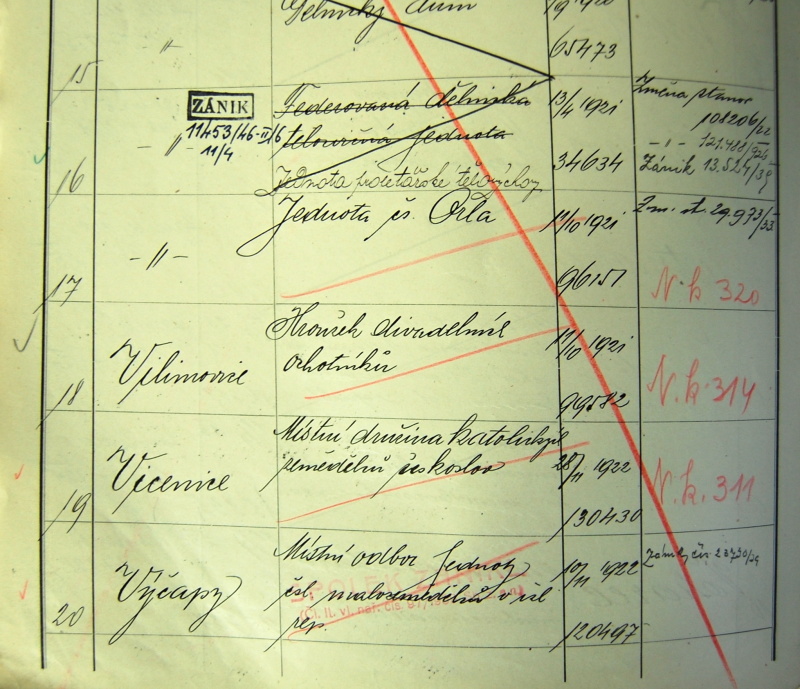 Dělnický dům
"
65473
15
ZÁNIK
11453/46-III/6
11/4
- " -
Federovaná dělnická
tělocvičná jednota
Jednota proletářské tělovýchovy
13/4 1921
34634
Změna stanov
108206/22
- " -
Zánik 13.524/39
16
Jednota čs. Orla
11/10 1921
Zm. st. 29.973/33
- " -
96151
N. k 320
17
Vilimovice
Kroužek divadelních
ochotníků
11/10 1921
99582
N. k. 314
18
Vícenice
Místní družina katolických
zemědělců
28/11 1922
130430
N. k. 311
19
Výčapy
Místní odbor Jednoty
čsl. malozemědělců v čsl
rep.
10/11 1922
120497
SPOLEK
(Čl. II. vl. nař. čís. 97/19
20